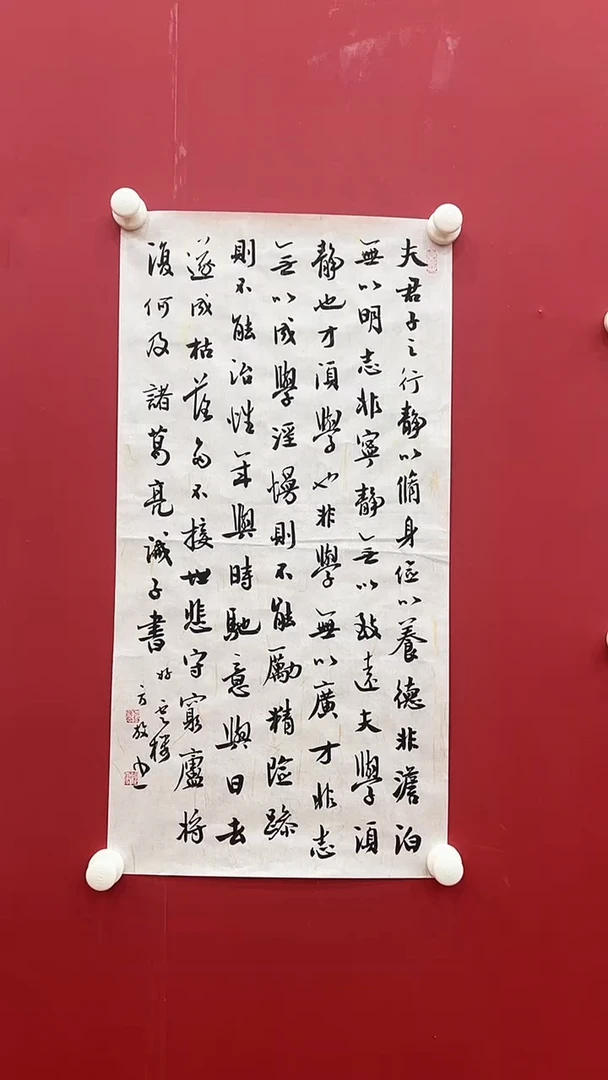 夫君子之行静以脩身俭以養德非澹泊
無以明志非寧静无以致遠夫學須
静也才須學也非學無以廣才非志
无以成學淫慢則不能勵精险躁
則不能治性年與時馳意與日去
遂成枯落多不接世悲守窮廬将
復何及諸葛亮誡子書